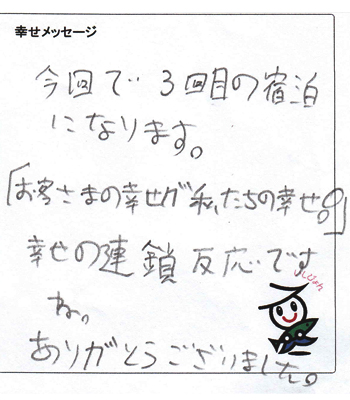 幸せメッセージ
今回で 3回目の宿泊
になります。
「お客さまの幸せが私たちの幸せ。」
幸せの連鎖反応です
ね。
ありがとうございました。